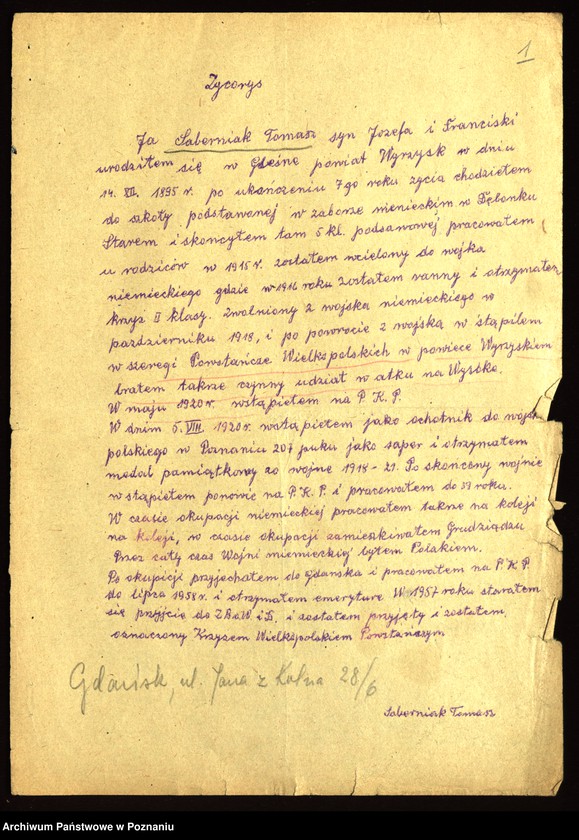 1
Zycorys
Ja Saberniak Tomasz syn Jozefa i Franciski
urodziłem się w Gleśne powiat Wyrzysk w dniu
14. XII. 1895 r. po ukończeniu 7go roku zycia chodziełem
do szkoły podstawanej w zaborze niemieckim w Dębonku
Starem i skoncytem tam 5 kl. podsamowej pracowałem
u rodziców w 1915 r. zostałem wcielony do wojka
niemieckiego gdzie w 1916 roku zostałem ranny i otrzymałem
krzyż II klasy. zwolniony z wojska niemieckiego w
październiku 1918, i po powrocie z wojska w stąpiłem
w szeregi Powstańcze Wielkopolskich w powiece Wyrzyskiem
bratem takze czynny udział w atku na Wysoke.
W maju 1920 r. wstąpiełem na P. K. P.
W dnim 5. VIII 1920 r. wstąpiełem jako ochotnik do
polskiego w Poznaniu 207 puku jako saper i otrzymałem
medal pamiątkowy za wojne 1918 - 21. Po skonceny wojnie
w stąpiełem ponownie na P. K. P. i pracowałem do 39 roku.
W czasie okupacji niemieckiej pracowałem takze na koleji
na koleji, w czasie okupacji zamieszkiwałem Grudziądzu
Przez cały czas Wojni niemieckiej byłem Polakiem.
Po okupicji przyjechałem do Gdańska i pracowałem na P. K. P.
do lipca 1958 r. i otrzymałem emeryture. W 1957 roku starałem
się przyjcie do Z B o W i D. i zostałem przyjęty i zostałem,
oznaczony Krzyzem Wielkopolskiem Powstańczym
Gdańsk, ul. Jana z Kolna 28/6
Saberniak Tomasz
Archiwum Państwowe w Poznaniu